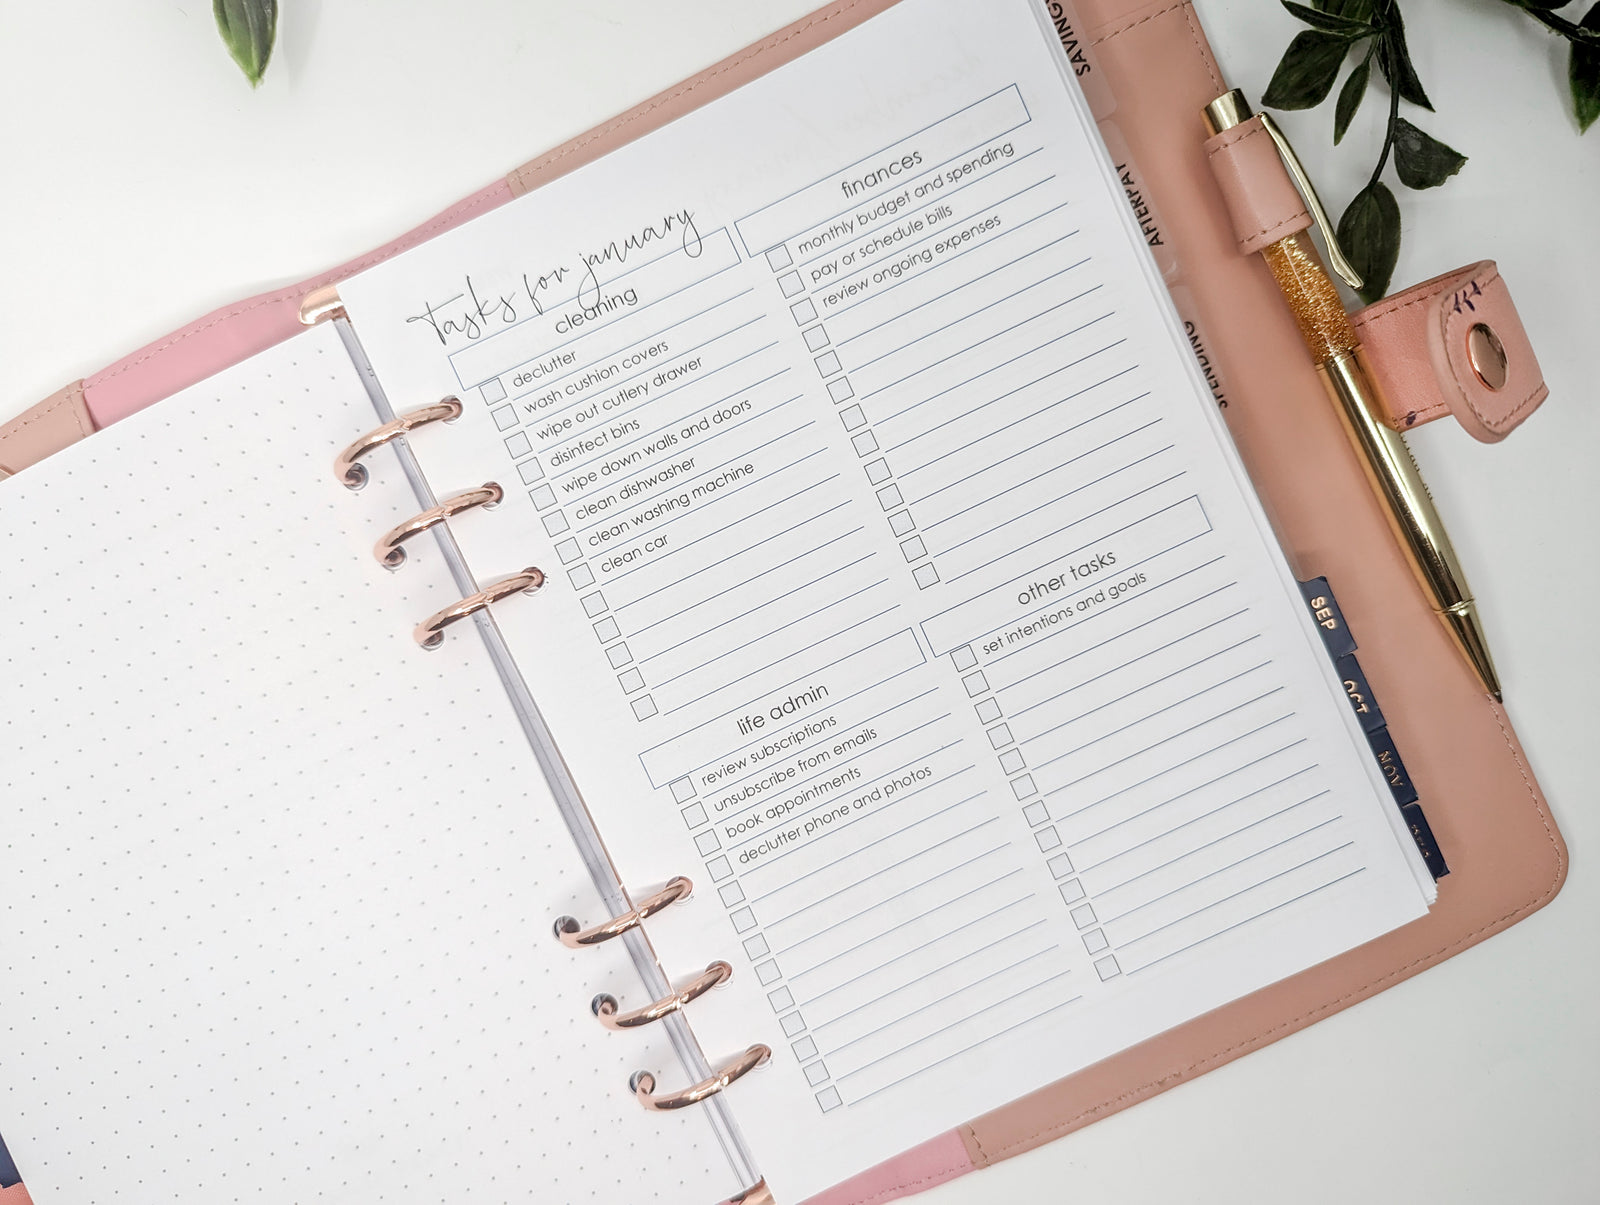 tasks for january
cleaning
declutter
wash cushion covers
wipe out cutlery drawer
disinfect bins
wipe down walls and doors
clean dishwasher
clean washing machine
clean car
finances
monthly budget and spending
pay or schedule bills
review ongoing expenses
life admin
review subscriptions
unsubscribe from emails
book appointments
declutter phone and photos
other tasks
set intentions and goals
SAVINGS
AFTERPAY
SPENDING
SEP
OCT
NOV